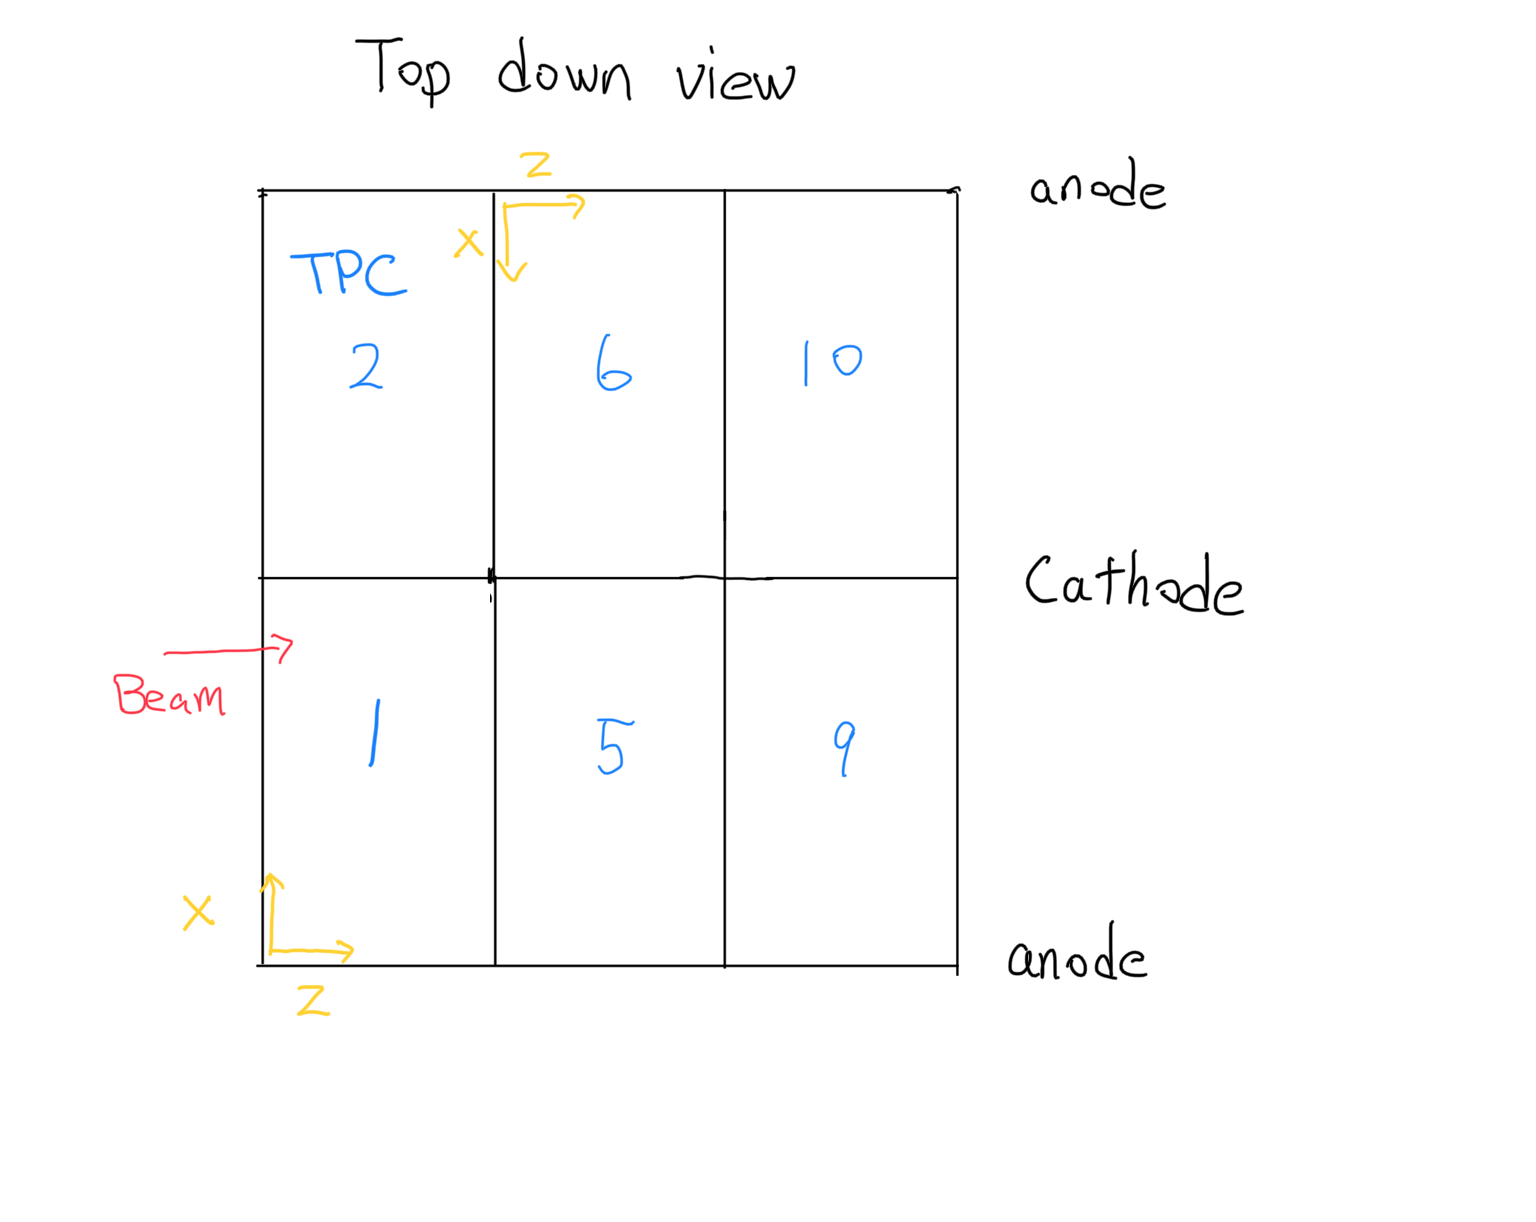 Top down view
z
anode
x
TPC
2
6
10
Cathode
Beam
1
5
9
x
anode
z